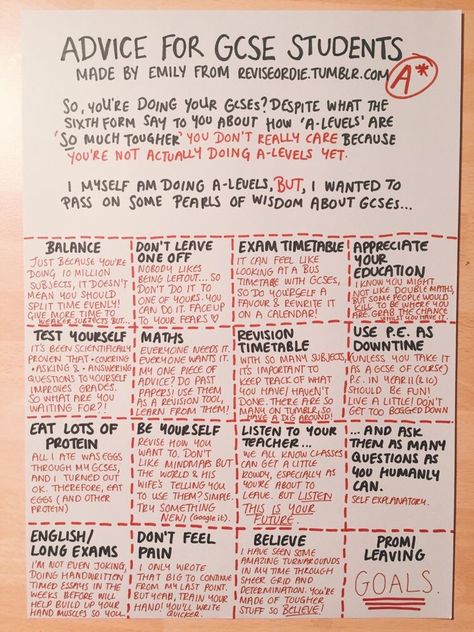 ADVICE FOR GCSE STUDENTS
MADE BY EMILY FROM REVISEORDIE.TUMBLR.COM
A*
SO, YOU'RE DOING YOUR GCSES? DESPITE WHAT THE
SIXTH FORM SAY TO YOU ABOUT HOW 'A-LEVELS' ARE
'SO MUCH TOUGHER' YOU DON'T REALLY CARE BECAUSE
YOU'RE NOT ACTUALLY DOING A-LEVELS YET.
I MYSELF AM DOING A-LEVELS, BUT, I WANTED TO
PASS ON SOME PEARLS OF WISDOM ABOUT GCSES...
BALANCE
JUST BECAUSE YOU'RE
DOING 10 MILLION
SUBJECTS, IT DOESN'T
MEAN YOU SHOULD
SPLIT TIME EVENLY!
GIVE MORE TIME TO
WEAKER SUBJECTS BUT...
DON'T LEAVE
ONE OFF
NOBODY LIKES
BEING LEFT OUT... SO
DON'T DO IT TO
ONE OF YOURS. YOU
CAN DO IT. FACE UP
TO YOUR FEARS ♡
EXAM TIMETABLE
IT CAN FEEL LIKE
LOOKING AT A BUS
TIMETABLE WITH GCSES,
SO DO YOURSELF A
FAVOUR & REWRITE IT
ON A CALENDAR!
APPRECIATE
YOUR
EDUCATION
I KNOW YOU MIGHT
NOT LIKE DOUBLE MATHS,
BUT SOME PEOPLE WOULD
KILL TO BE WHERE YOU
ARE. GRAB THE CHANCE
WHILST YOU HAVE IT.
TEST YOURSELF
IT'S BEEN SCIENTIFICALLY
PROVEN THAT •COVERING
•ASKING & •ANSWERING
QUESTIONS TO YOURSELF
IMPROVES GRADES.
SO WHAT ARE YOU
WAITING FOR?!
MATHS
EVERYONE NEEDS IT.
EVERYONE WANTS IT.
MY ONE PIECE OF
ADVICE? DO PAST
PAPERS! USE THEM
AS A REVISION TOOL,
LEARN FROM THEM!
REVISION
TIMETABLE
WITH SO MANY SUBJECTS,
IT'S IMPORTANT TO
KEEP TRACK OF WHAT
YOU HAVE/HAVEN'T
DONE. THERE ARE SO
MANY ON TUMBLR, SO
HAVE A DIG AROUND!
USE P.E. AS
DOWNTIME
(UNLESS YOU TAKE IT
AS A GCSE OF COURSE)
P.E. IN YEAR 11 (R 10)
SHOULD BE FUN!
LIVE A LITTLE! DON'T
GET TOO BOGGED DOWN
EAT LOTS OF
PROTEIN
ALL I ATE WAS EGGS
THROUGH MY GCSES,
AND I TURNED OUT
OK. THEREFORE, EAT
EGGS (AND OTHER
PROTEIN)
BE YOURSELF
REVISE HOW YOU
WANT TO. DON'T
LIKE MINDMAPS BUT
THE WORLD & HIS
WIFE'S TELLING YOU
TO USE THEM? SIMPLE.
TRY SOMETHING
NEW! (Google it).
LISTEN TO YOUR
TEACHER...
WE ALL KNOW CLASSES
CAN GET A LITTLE
ROWDY, ESPECIALLY AS
YOU'RE ABOUT TO
LEAVE. BUT LISTEN
THIS IS YOUR
FUTURE.
...AND ASK
THEM AS MANY
QUESTIONS AS
YOU HUMANLY
CAN.
SELF EXPLANATORY.
ENGLISH/
LONG EXAMS
I'M NOT EVEN JOKING,
DOING HANDWRITTEN
TIMED ESSAYS IN THE
WEEKS BEFORE WILL
HELP BUILD UP YOUR
HAND MUSCLES SO YOU..
DON'T FEEL
PAIN
I ONLY WROTE
THAT BIG TO CONTINUE
FROM MY LAST POINT.
BUT YEAH, TRAIN YOUR
HAND! YOU'LL WRITE
QUICKER.
BELIEVE
I HAVE SEEN SOME
AMAZING TURNAROUNDS
IN MY TIME THROUGH
SHEER GRID AND
DETERMINATION. YOU'RE
MADE OF TOUGHER
STUFF SO BELIEVE!
PROM/
LEAVING
GOALS.